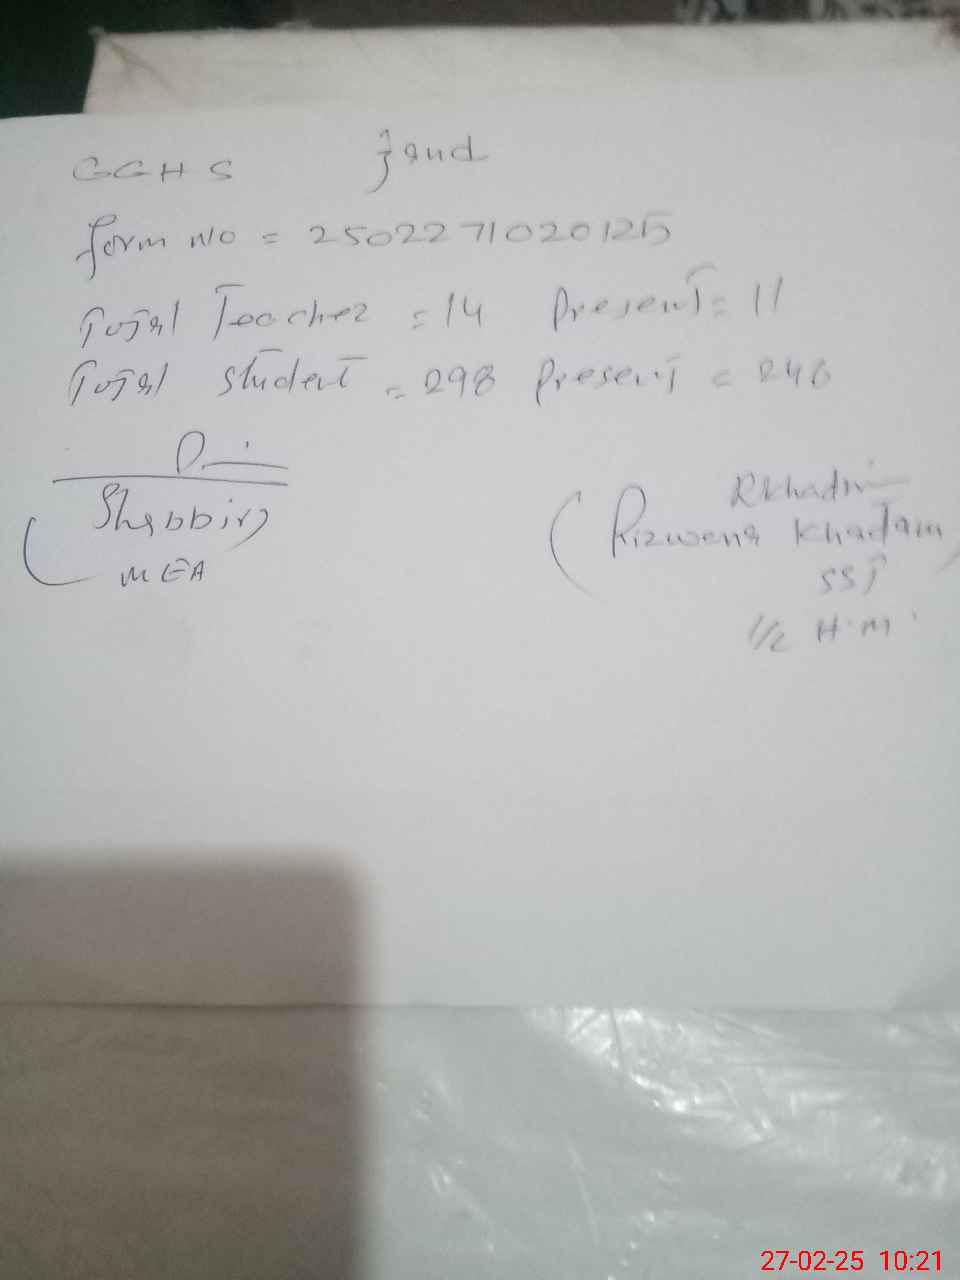 GGHS Jand
form no = 2502271020125
Total Teacher = 14 Present = 11
Total student = 298 Present = 246
Shabbir
MEA
RKhadim
(Rizwana Khadam)
SST
I/c H.M.
27-02-25 10:21